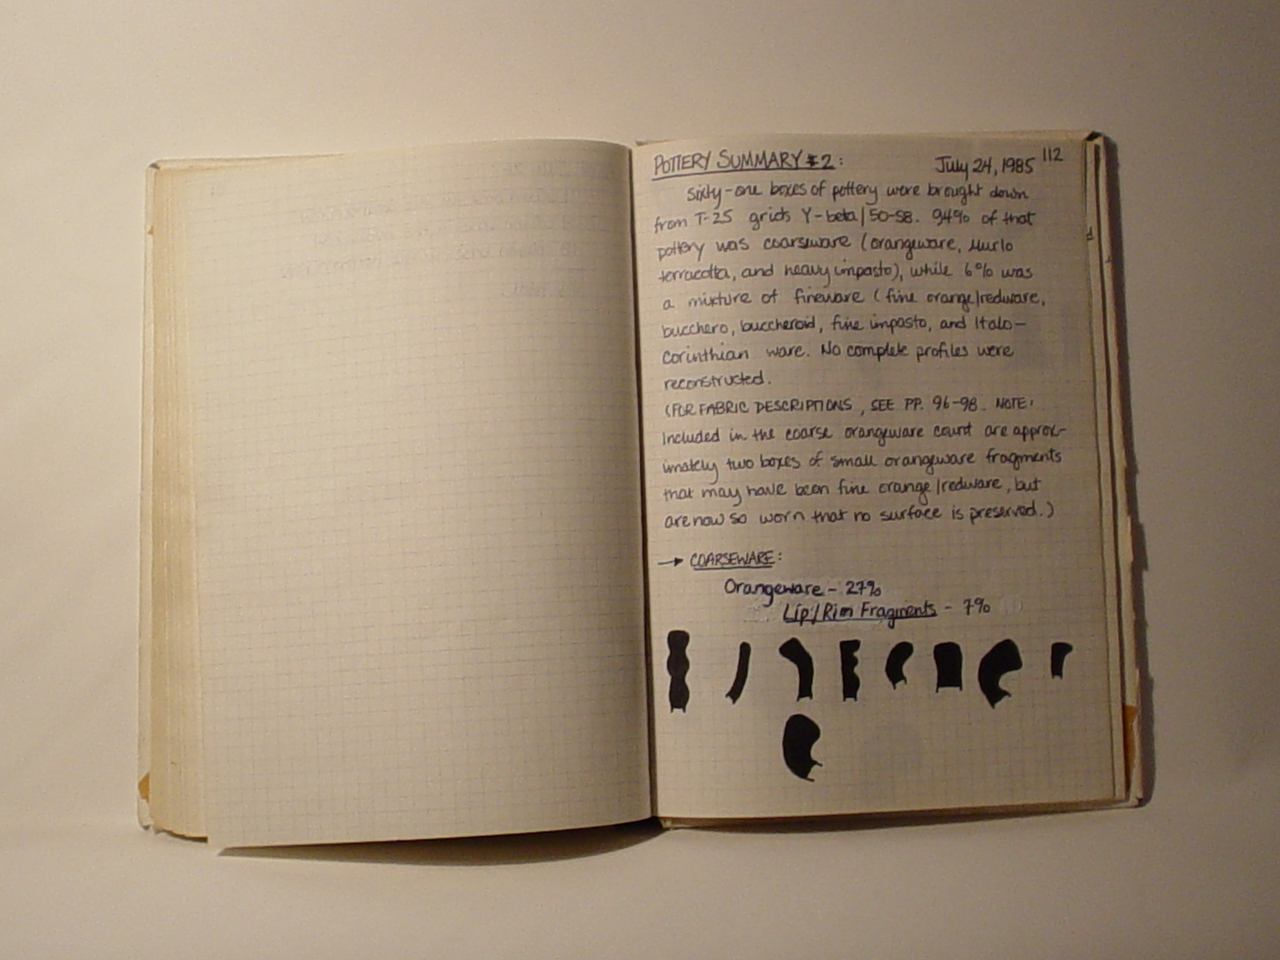 112
POTTERY SUMMARY #2: July 24, 1985
Sixty-one boxes of pottery were brought down
from T-25 grids Y-beta/50-58. 94% of that
pottery was coarseware (orangeware, Murlo
terracotta, and heavy impasto), while 6% was
a mixture of fineware (fine orange/redware,
bucchero, buccheroid, fine impasto, and Italo-
Corinthian ware. No complete profiles were
reconstructed.
(FOR FABRIC DESCRIPTIONS, SEE PP. 96-98. NOTE:
Included in the coarse orangeware count are approx-
imately two boxes of small orangeware fragments
that may have been fine orange/redware, but
are now so worn that no surface is preserved.)
→ COARSEWARE:
Orangeware - 27%
Lip/Rim Fragments - 7%